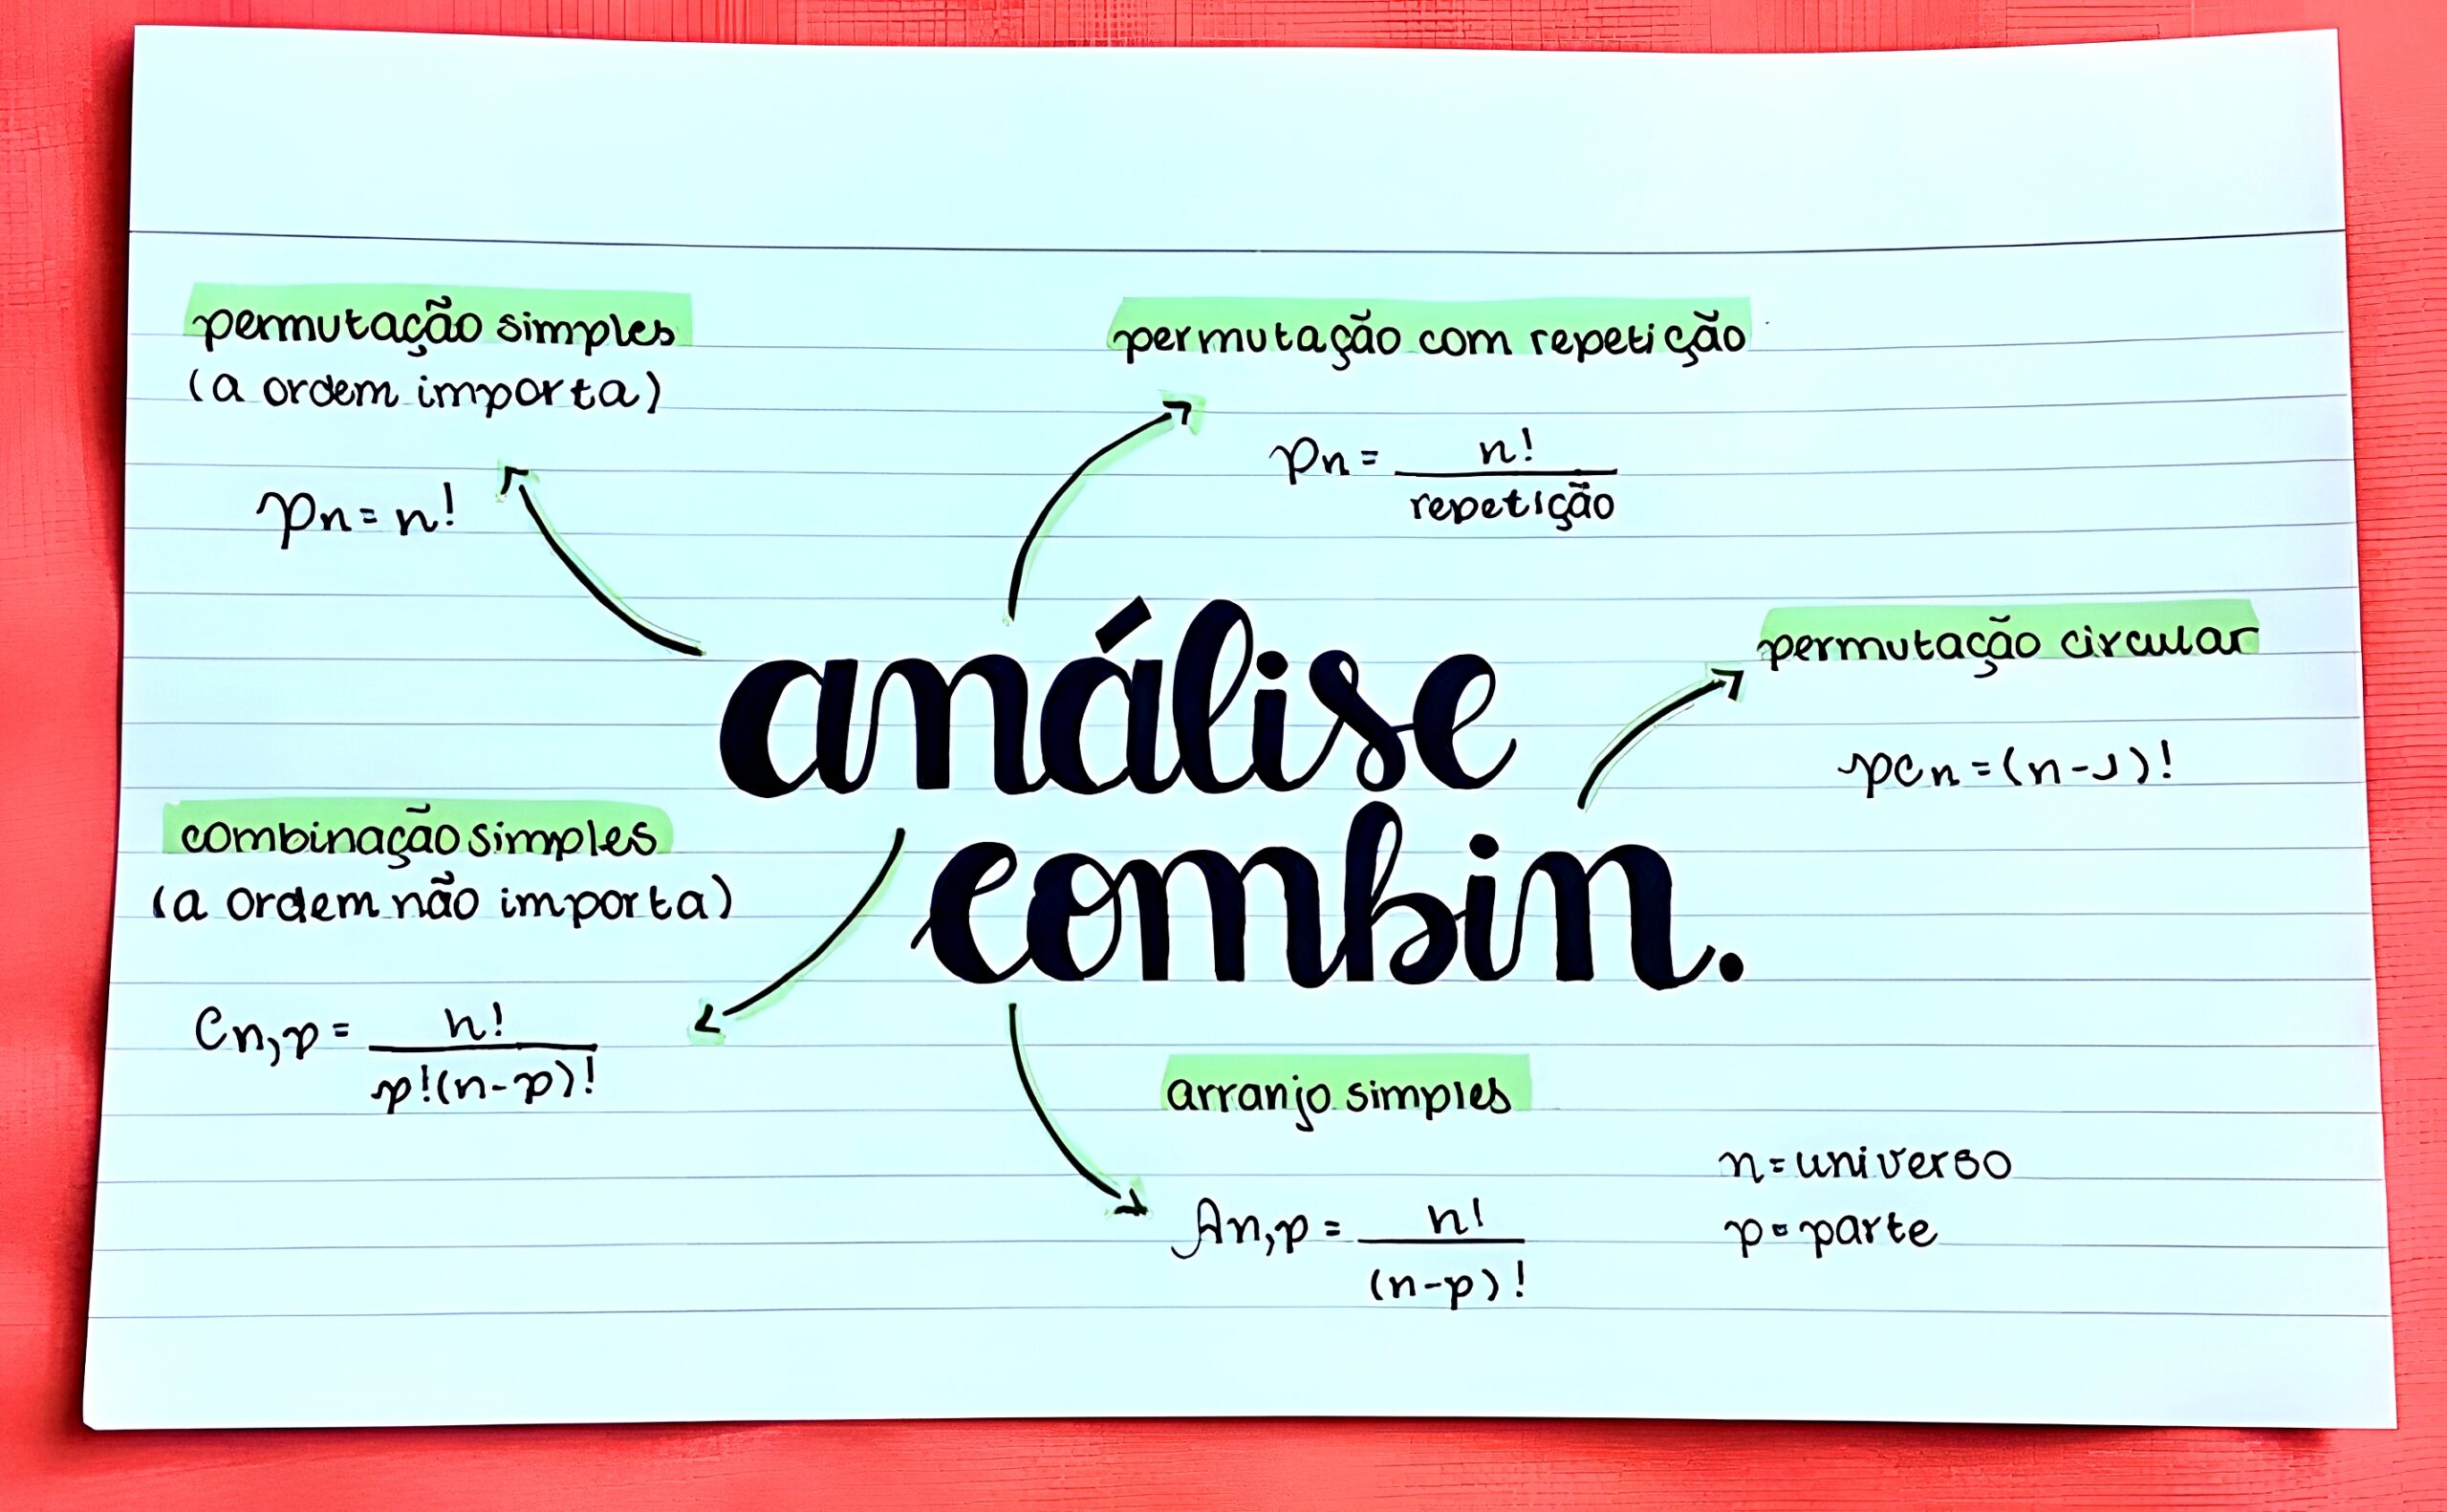 permutação simples
(a ordem importa)
pn = n!
permutação com repetição
pn = n!
repetição
análise
combin.
permutação circular
pcn = (n-1)!
combinação simples
(a ordem não importa)
Cn,p = n!
p!(n-p)!
arranjo simples
An,p = n!
(n-p)!
n = universo
p = parte